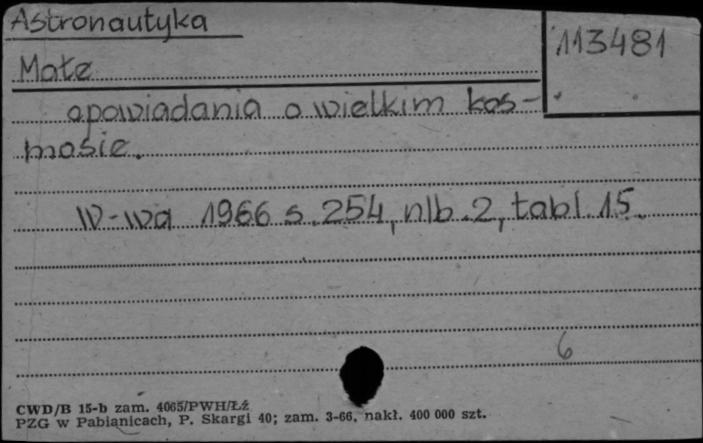 Astronautyka
113481
Małe
opowiadania o wielkim kos-
mosie.
W-wa 1966 s. 254, nlb. 2, tabl. 15.
6
CWD/B 15-b zam. 4065/PWH/Łź
PZG w Pabianicach, P. Skargi 40; zam. 3-66, nakł. 400 000 szt.